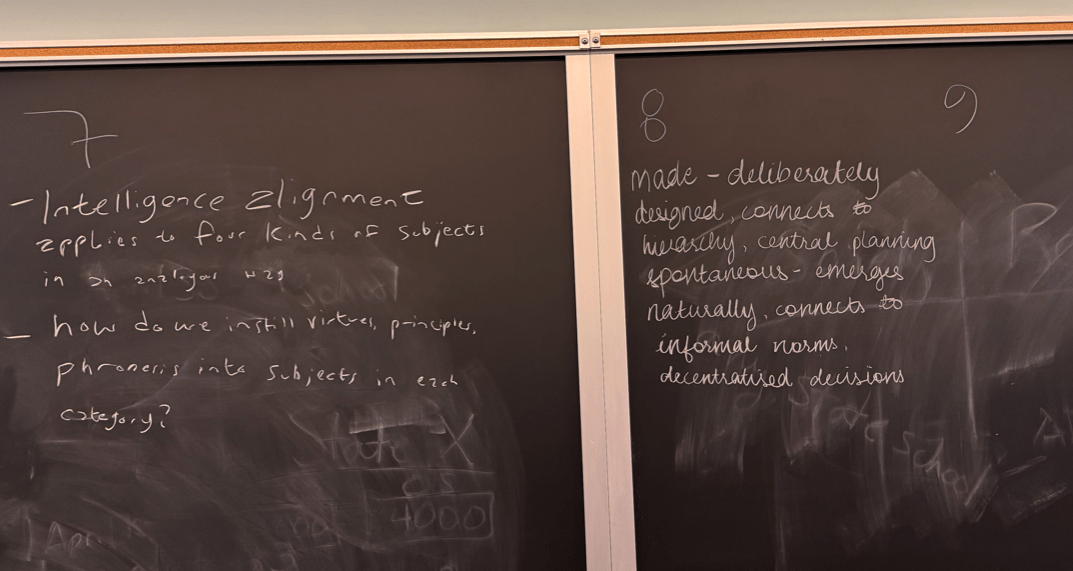 7
- Intelligence alignment
applies to four kinds of subjects
in an analogous way
- how do we instill virtues, principles,
phronesis into subjects in each
category?
4000
8
made - deliberately
designed, connects to
hierarchy, central planning
spontaneous - emerges
naturally, connects to
informal norms,
decentratised decisions
School
9